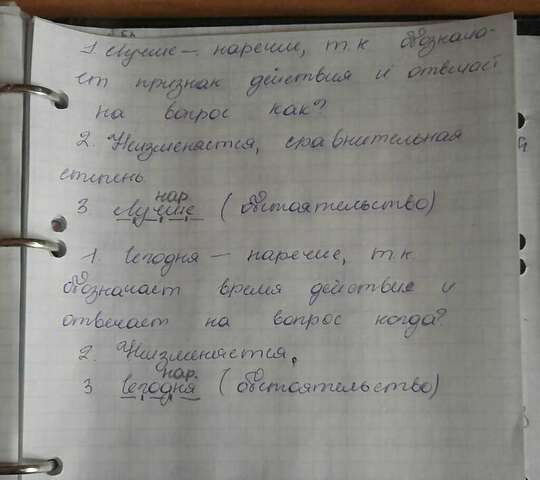 1 Лучше – наречие, т.к обознача-
ет признак действия и отвечает
на вопрос как?
2. Неизменяется, сравнительная
степень
нар.
3 Лучше (обстоятельство)
1. Сегодня – наречие, т.к
обозначает время действия и
отвечает на вопрос когда?
2. Неизменяется,
нар.
3 Сегодня (обстоятельство)